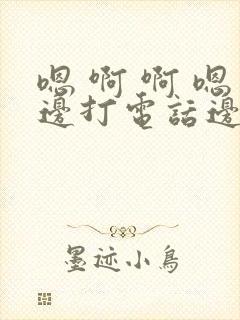 嗯啊啊嗯
邊打電話邊
墨迹小鳥